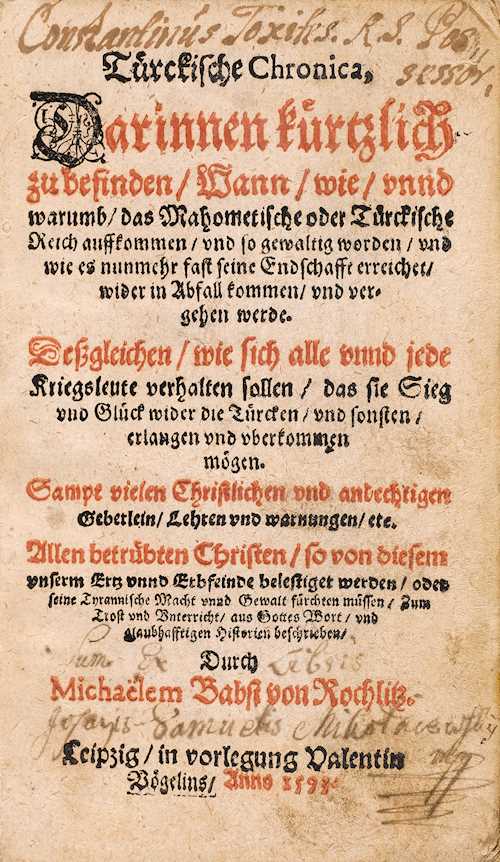 Constantinus Toxites. R. S. Pos
sessor.
Türckische Chronica,
Darinnen kürtzlich
zu befinden / Wann / wie / vnnd
warumb / das Mahometische oder Türckische
Reich auffkommen / vnd so gewaltig worden / vnd
wie es nunmehr fast seine Endschafft erreichet /
wider in Abfall kommen / vnd ver-
gehen werde.
Deßgleichen / wie sich alle vnnd jede
Kriegsleute verhalten sollen / das sie Sieg
vnd Glück wider die Türcken / vnd sonsten /
erlangen vnd vberkommen
mögen.
Sampt vielen Christlichen vnd andechtigen
Geberlein / Lehren vnd warnungen / etc.
Allen betrübten Christen / so von diesem
vnserm Ertz vnnd Erbfeinde belestiget werden / oder
seine Tyrannische Macht vnnd Gewalt fürchten müssen / Zum
Trost vnd Vnterricht / aus Gottes Wort / vnd
glaubhafftigen Historien beschrieben /
Sum Ex Libris
Durch
Michaëlem Babst von Rochlitz.
Samuelis
Leipzig / in vorlegung Valentin
Vögelins / Anno